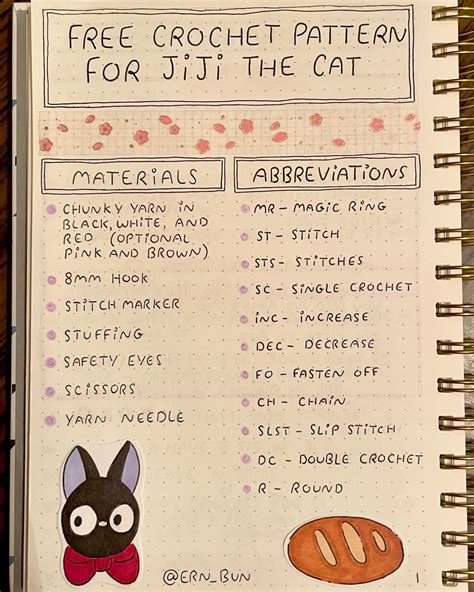 FREE CROCHET PATTERN
FOR JiJi THE CAT
MATERIALS
CHUNKY YARN IN
BLACK, WHITE, AND
RED (OPTIONAL
PINK AND BROWN)
8MM HOOK
STITCH MARKER
STUFFING
SAFETY EYES
SCISSORS
YARN NEEDLE
ABBREVIATIONS
MR - MAGIC RING
ST - STITCH
STS - STITCHES
SC - SINGLE CROCHET
INC - INCREASE
DEC - DECREASE
FO - FASTEN OFF
CH - CHAIN
SLST - SLIP STITCH
DC - DOUBLE CROCHET
R - ROUND
@ERN_BUN
1